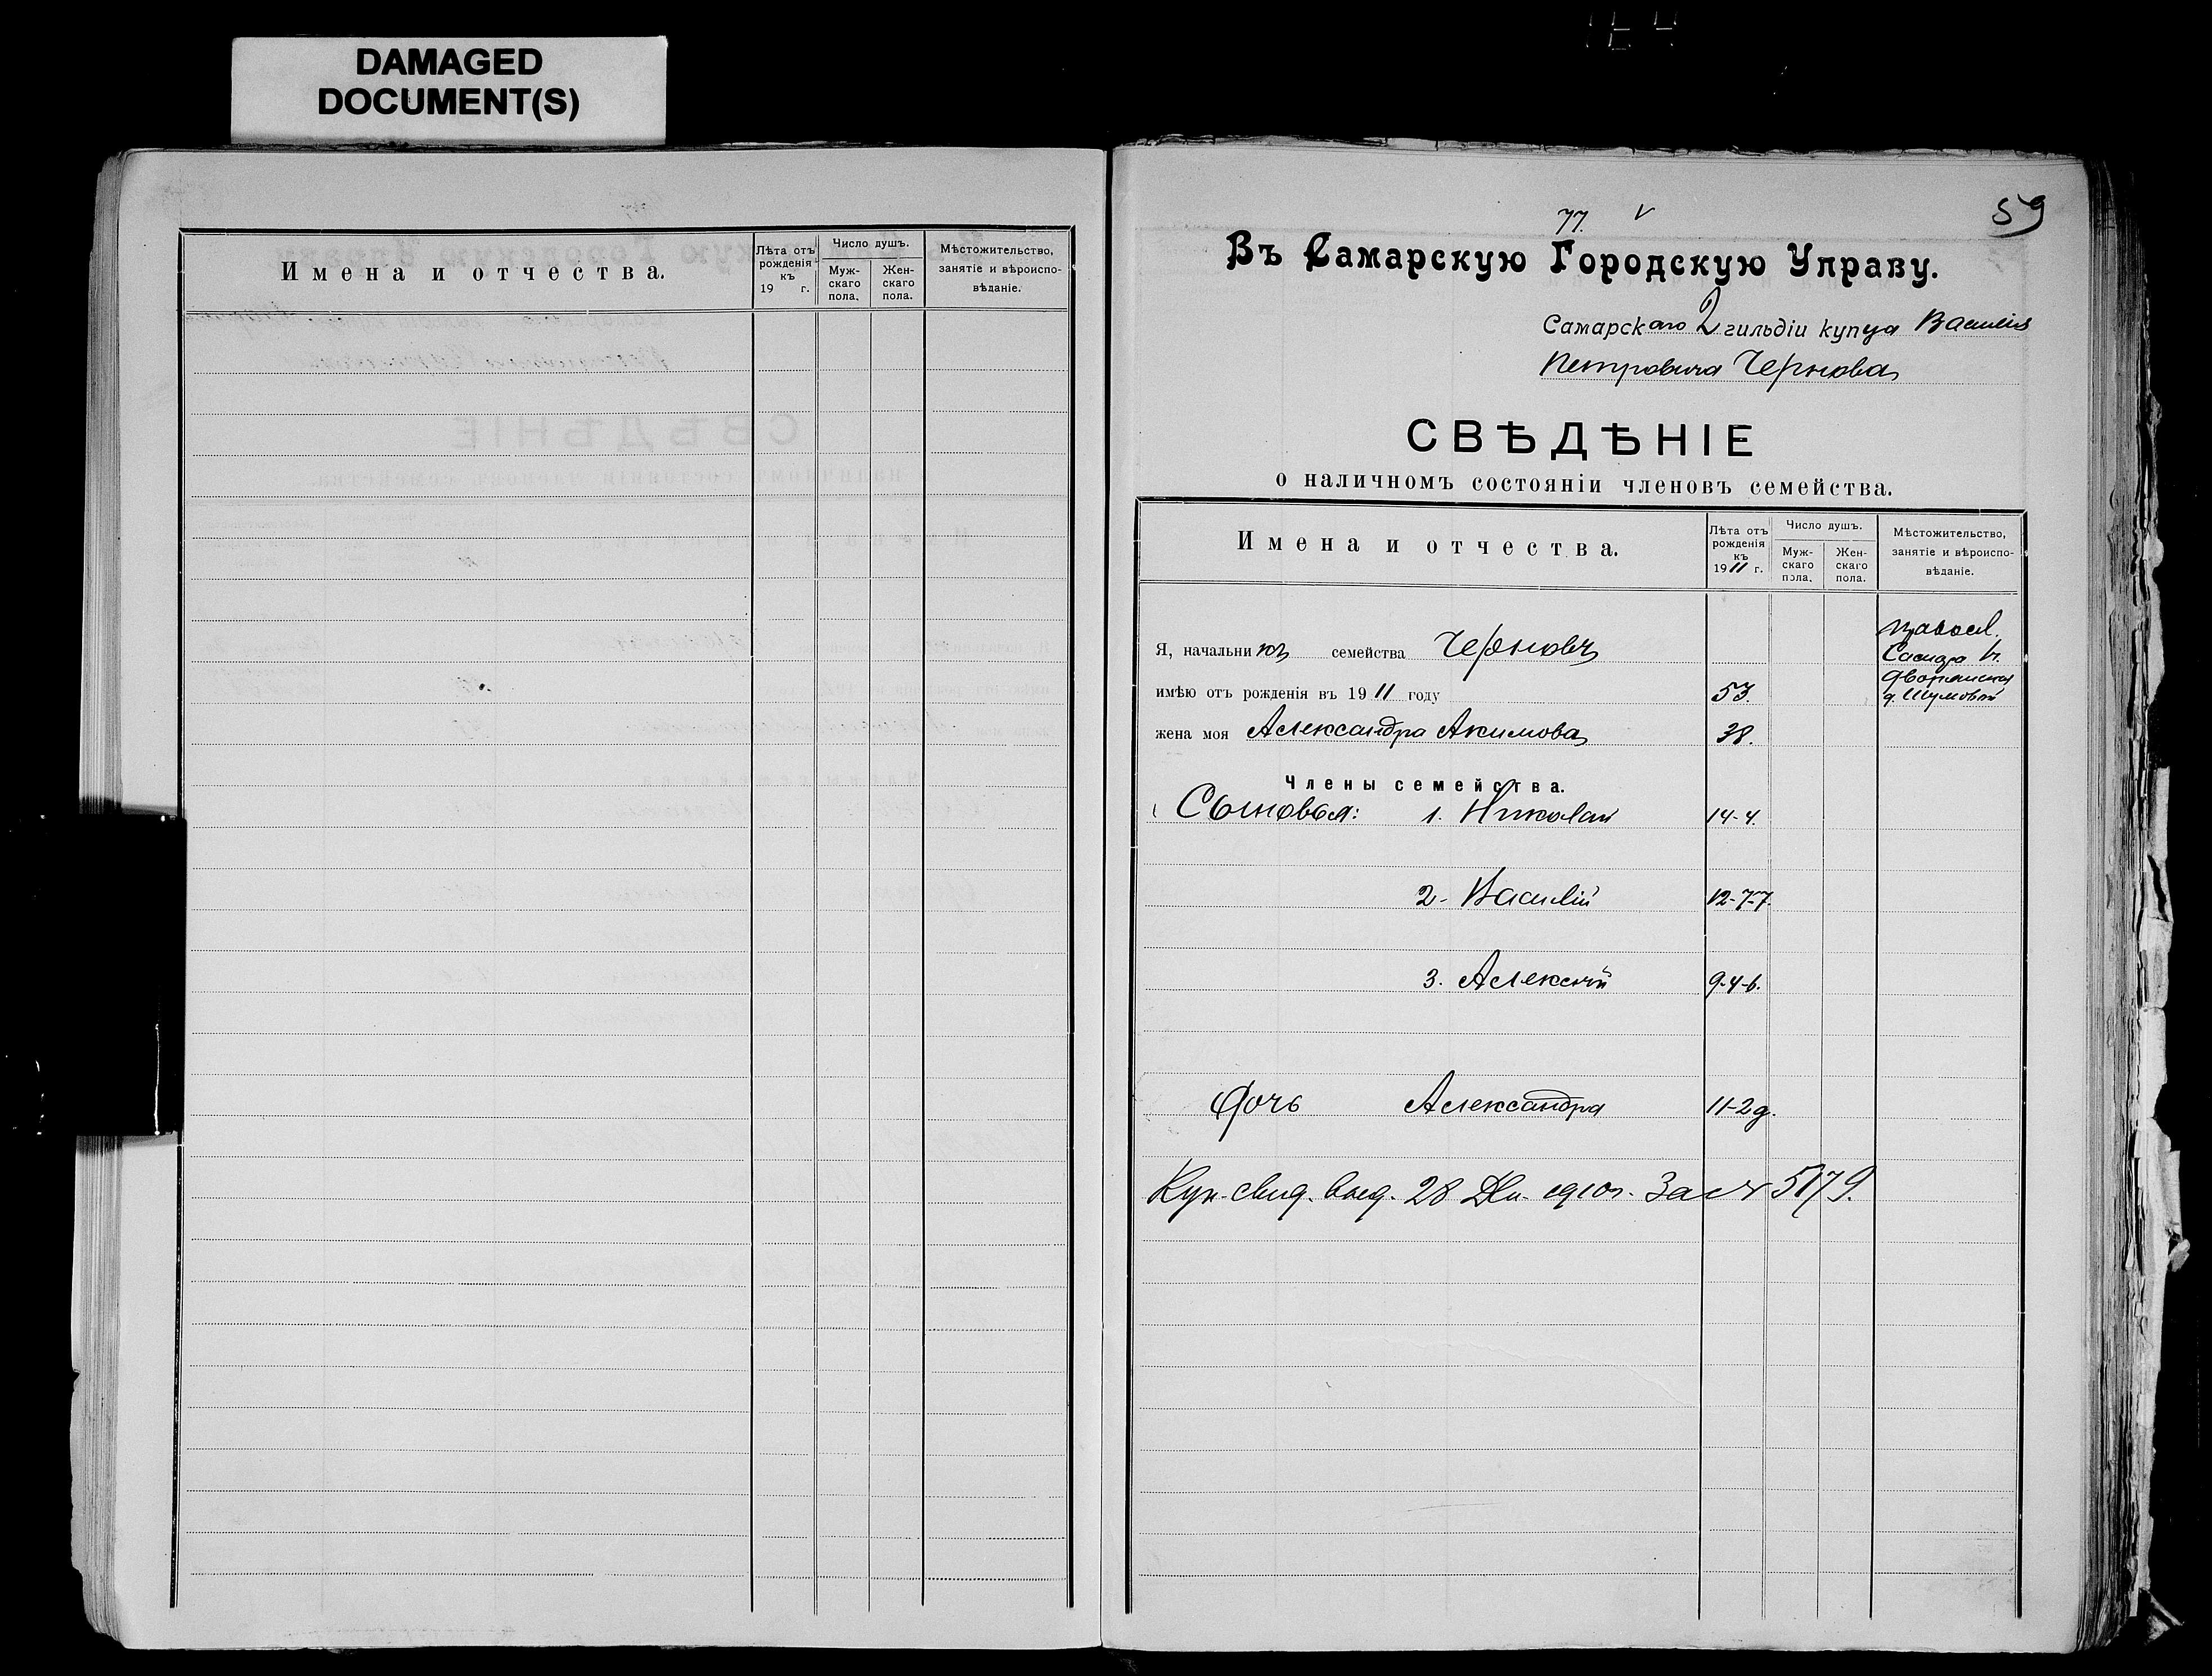 DAMAGED
DOCUMENT(S)
Имена и отчества.
Лѣта отъ рожденія къ 19 г.
Число душъ.
Мужскаго пола.
Женскаго пола.
Мѣстожительство, занятіе и вѣроисповѣданіе.
59
77. V
Въ Самарскую Городскую Управу.
Самарскаго 2 гильдіи купца Василія
Петровича Чернова
СВѢДѢНІЕ
о наличномъ состояніи членовъ семейства.
Имена и отчества.
Лѣта отъ рожденія къ 1911 г.
Число душъ.
Муж-
скаго
пола.
Жен-
скаго
пола.
Мѣстожительство,
занятіе и вѣроиспо-
вѣданіе.
Я, начальникъ семейства Черновъ
правосл.
Самара
Дворянская
д. Шумовой
имѣю отъ рожденія въ 1911 году 53.
жена моя Александра Акимова 38.
Члены семейства.
Сыновья: 1. Николай 14-4.
2- Василій 12-7-7.
3. Алексѣй 9-4-6.
Дочь Александра 11-2д.
Куп. свид. выд. 28 Дк. 1910г. За № 5179.